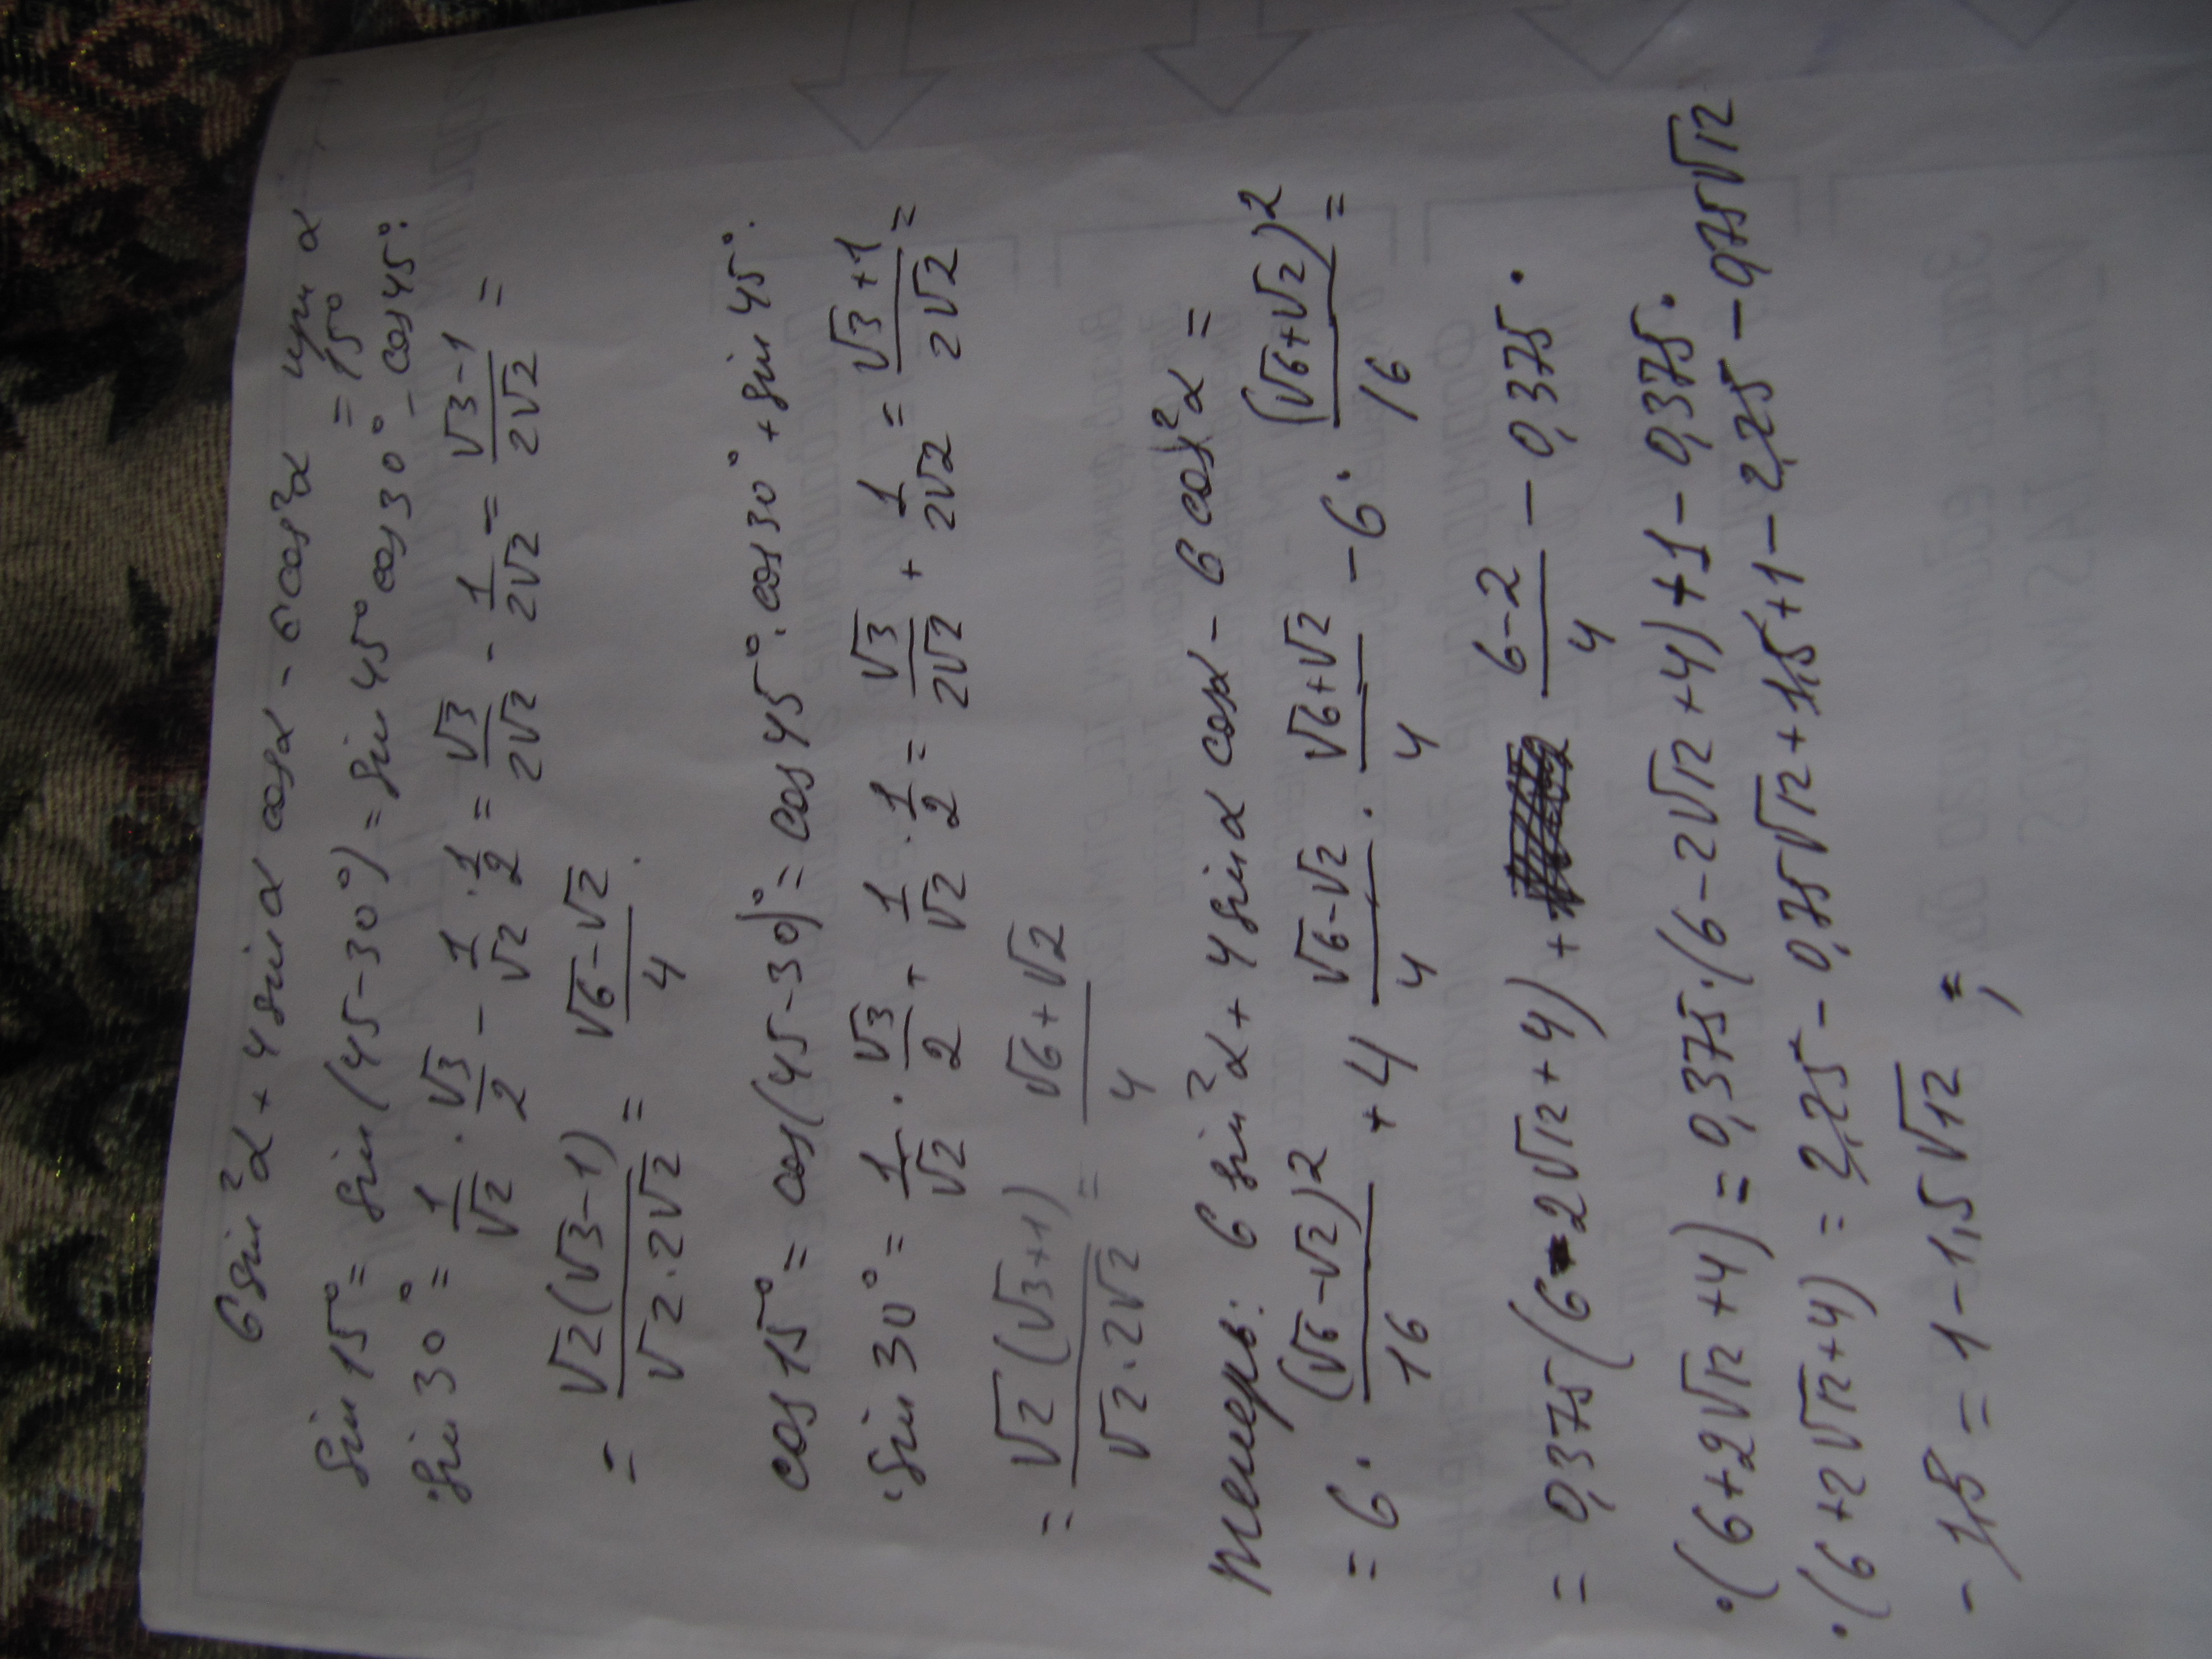 6 sin²α + 4 sin α cos α - 6 cos²α при α = 15°
sin 15° = sin (45-30°) = sin 45° cos 30° - cos 45°·
· sin 30° = 1/√2 · √3/2 - 1/√2 · 1/2 = √3/2√2 - 1/2√2 = √3-1/2√2 =
= √2(√3-1)/√2·2√2 = √6-√2/4 .
cos 15° = cos (45-30)° = cos 45°· cos 30° + sin 45°·
· sin 30° = 1/√2 · √3/2 + 1/√2 · 1/2 = √3/2√2 + 1/2√2 = √3+1/2√2 =
= √2(√3+1)/√2·2√2 = √6+√2/4
теперь: 6 sin²α + 4 sin α cos α - 6 cos²α =
= 6 · (√6-√2)²/16 + 4 √6-√2/4 · √6+√2/4 - 6 · (√6+√2)²/16 =
= 0,375 (6-2√12+4) + 6-2/4 - 0,375 ·
· (6+2√12+4) = 0,375·(6-2√12+4)+1-0,375·
· (6+2√12+4) = 2,25 - 0,75√12 + 1,5 + 1 - 2,25 - 0,75√12
- 1,5 = 1 - 1,5√12 ;